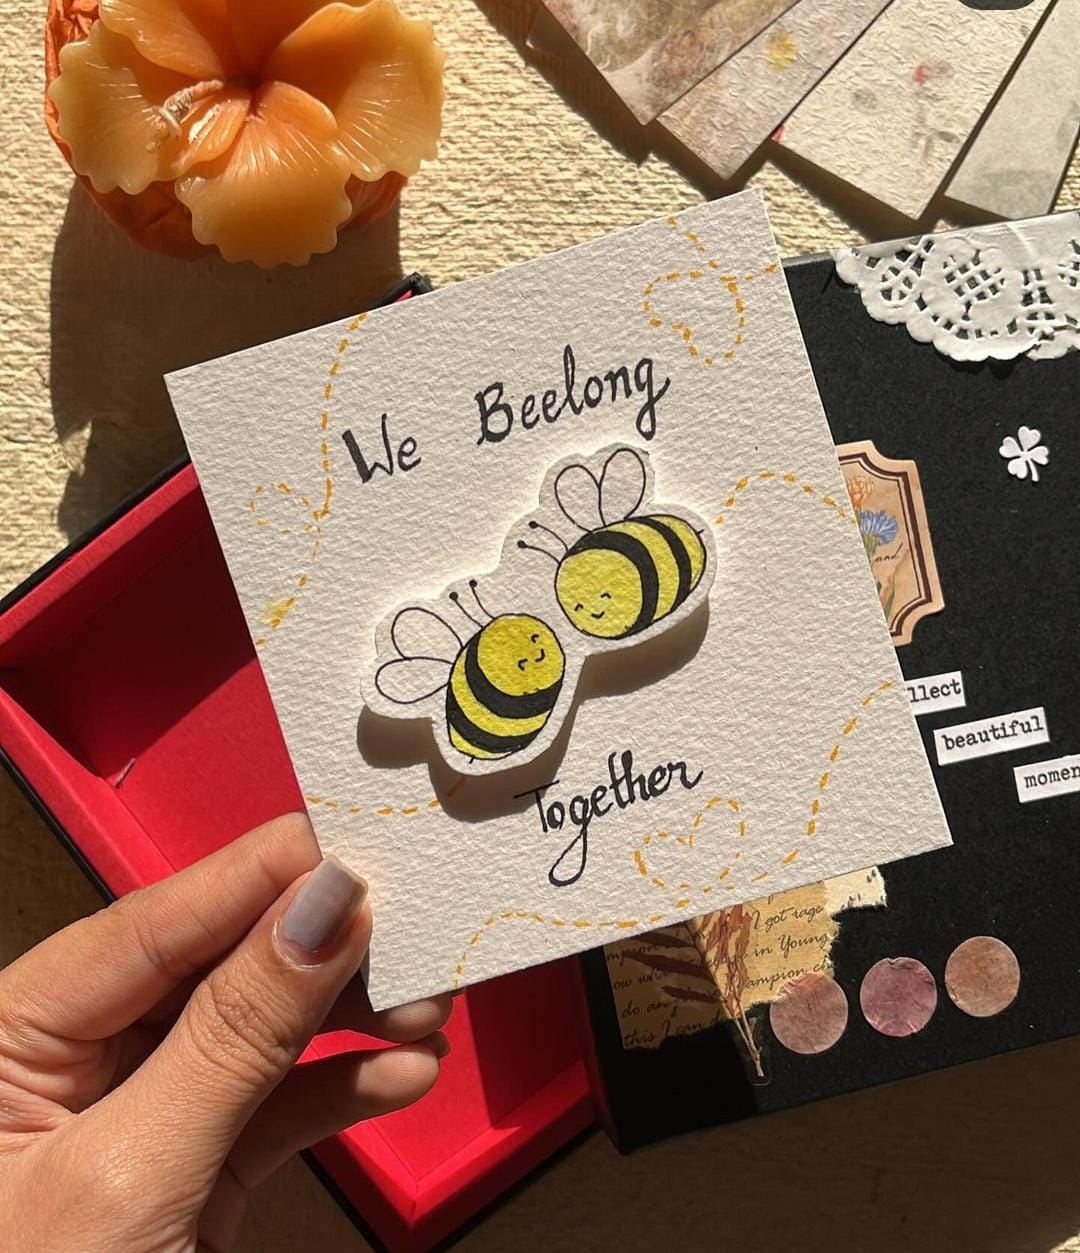 We Beelong
Together
and
llect
beautiful
momen
I got
in Young
ampion
do an
this I can d